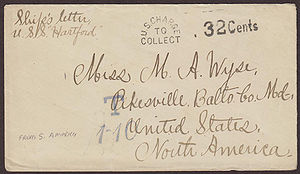 Ship's letter
U.S.S "Hartford"
U.S. CHARGE
TO
COLLECT
32 Cents
Miss M. A. Wyse,
Pikesville, Balto. Co. Md.
T
United States,
FROM S. AMERICA
North America.